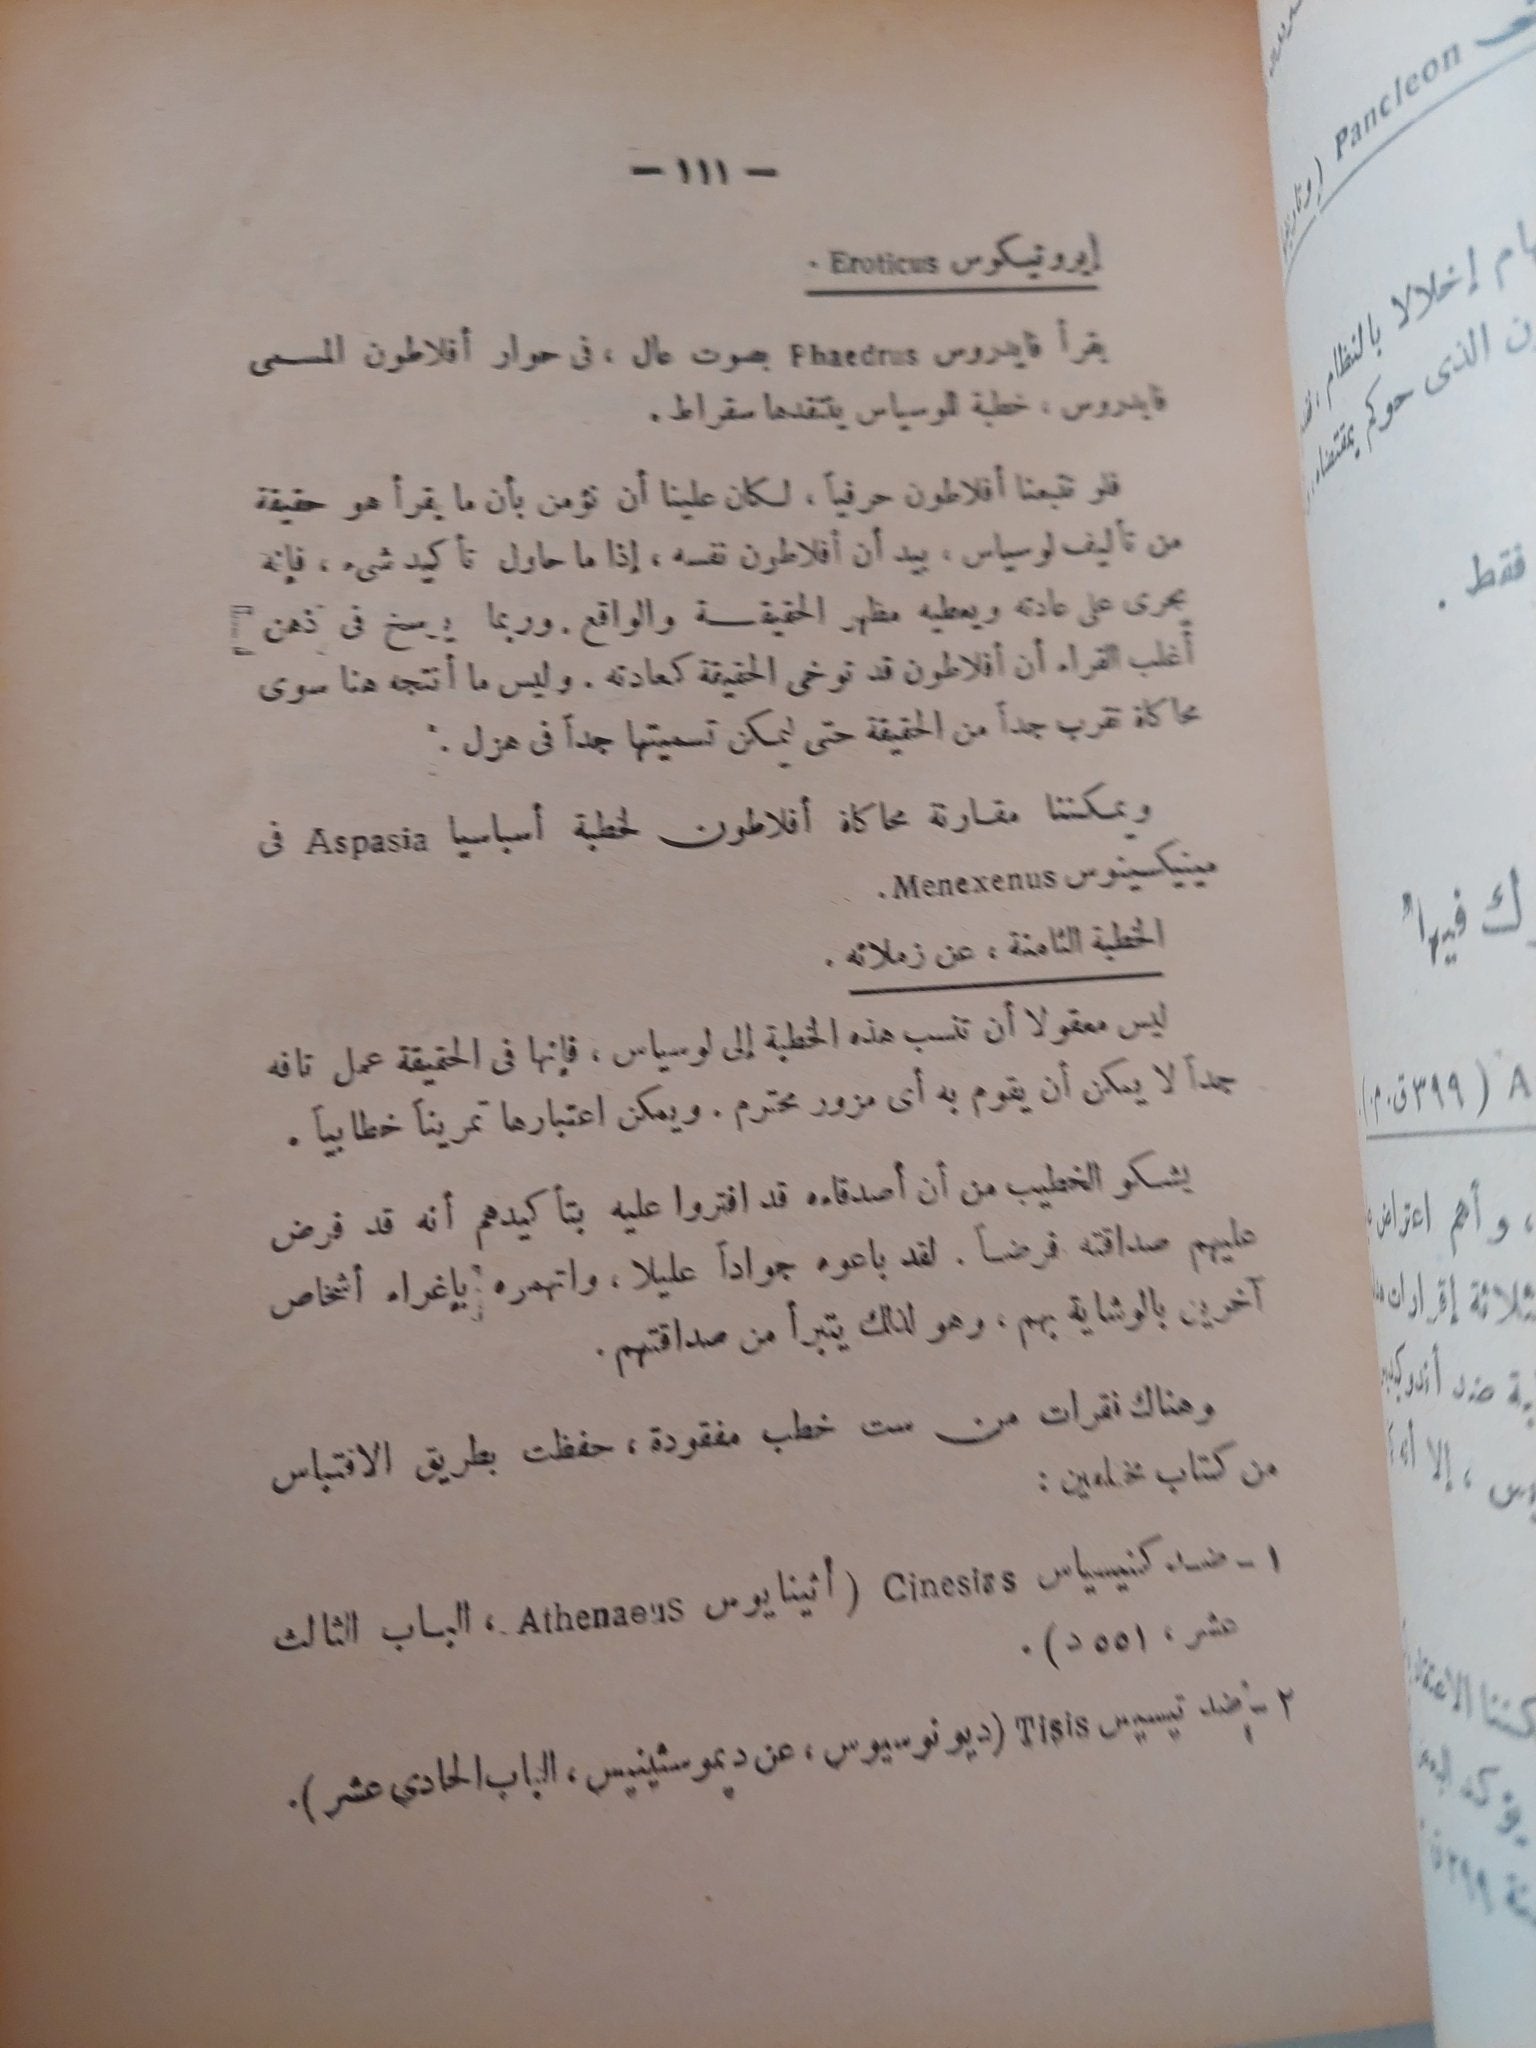 — ١١١ —
إيروتيكوس Eroticus .
يقرأ فايدروس Phaedrus بصوت عال ، فى حوار أفلاطون المسمى
فايدروس ، خطبة للوسياس ينتقدها سقراط .
فلو تتبعنا أفلاطون حرفياً ، لكان علينا أن نؤمن بأن ما يقرأ هو حقيقة
من تأليف لوسياس ، بيد أن أفلاطون نفسه ، إذا ما حاول تأكيد شىء ، فإنه
يجرى على عادته ويعطيه مظهر الحقيقة والواقع . وربما يرسخ فى ذهن
أغلب القراء أن أفلاطون قد توخى الحقيقة كعادته . وليس ما أنتجه هنا سوى
محاكاة تقرب جداً من الحقيقة حتى ليمكن تسميتها جداً فى هزل .
ويمكننا مقارنة محاكاة أفلاطون لخطبة أسباسيا Aspasia فى
مينيكسينوس Menexenus .
الخطبة الثامنة ، عن زملائه .
ليس معقولا أن تنسب هذه الخطبة إلى لوسياس ، فإنها فى الحقيقة عمل تافه
جداً لا يمكن أن يقوم به أى مزور محترم . ويمكن اعتبارها تمريناً خطابياً .
يشكو الخطيب من أن أصدقاءه قد افتروا عليه بتأكيدهم أنه قد فرض
عليهم صداقته فرضاً . لقد باعوه جواداً عليلا ، واتهموه بإغراء أشخاص
آخرين بالوشاية بهم ، وهو لذلك يتبرأ من صداقتهم .
وهناك فقرات من ست خطب مفقودة ، حفظت بطريق الاقتباس
من كتاب مختلفين :
١ - ضد كنيسياس Cinesias ( أثينايوس Athenaeus ، الباب الثالث
عشر ، ٥٥١ د ) .
٢ - ضد تيسيس Tisis (ديونوسيوس ، عن ديموستينيس ، الباب الحادى عشر ) .
Pancleon
إخلالا بالنظام
الذى حوكم بمقتضاه
فقط .
فيها"
( ٣٩٩ ق . م . )
، وأهم
ضد
، إلا